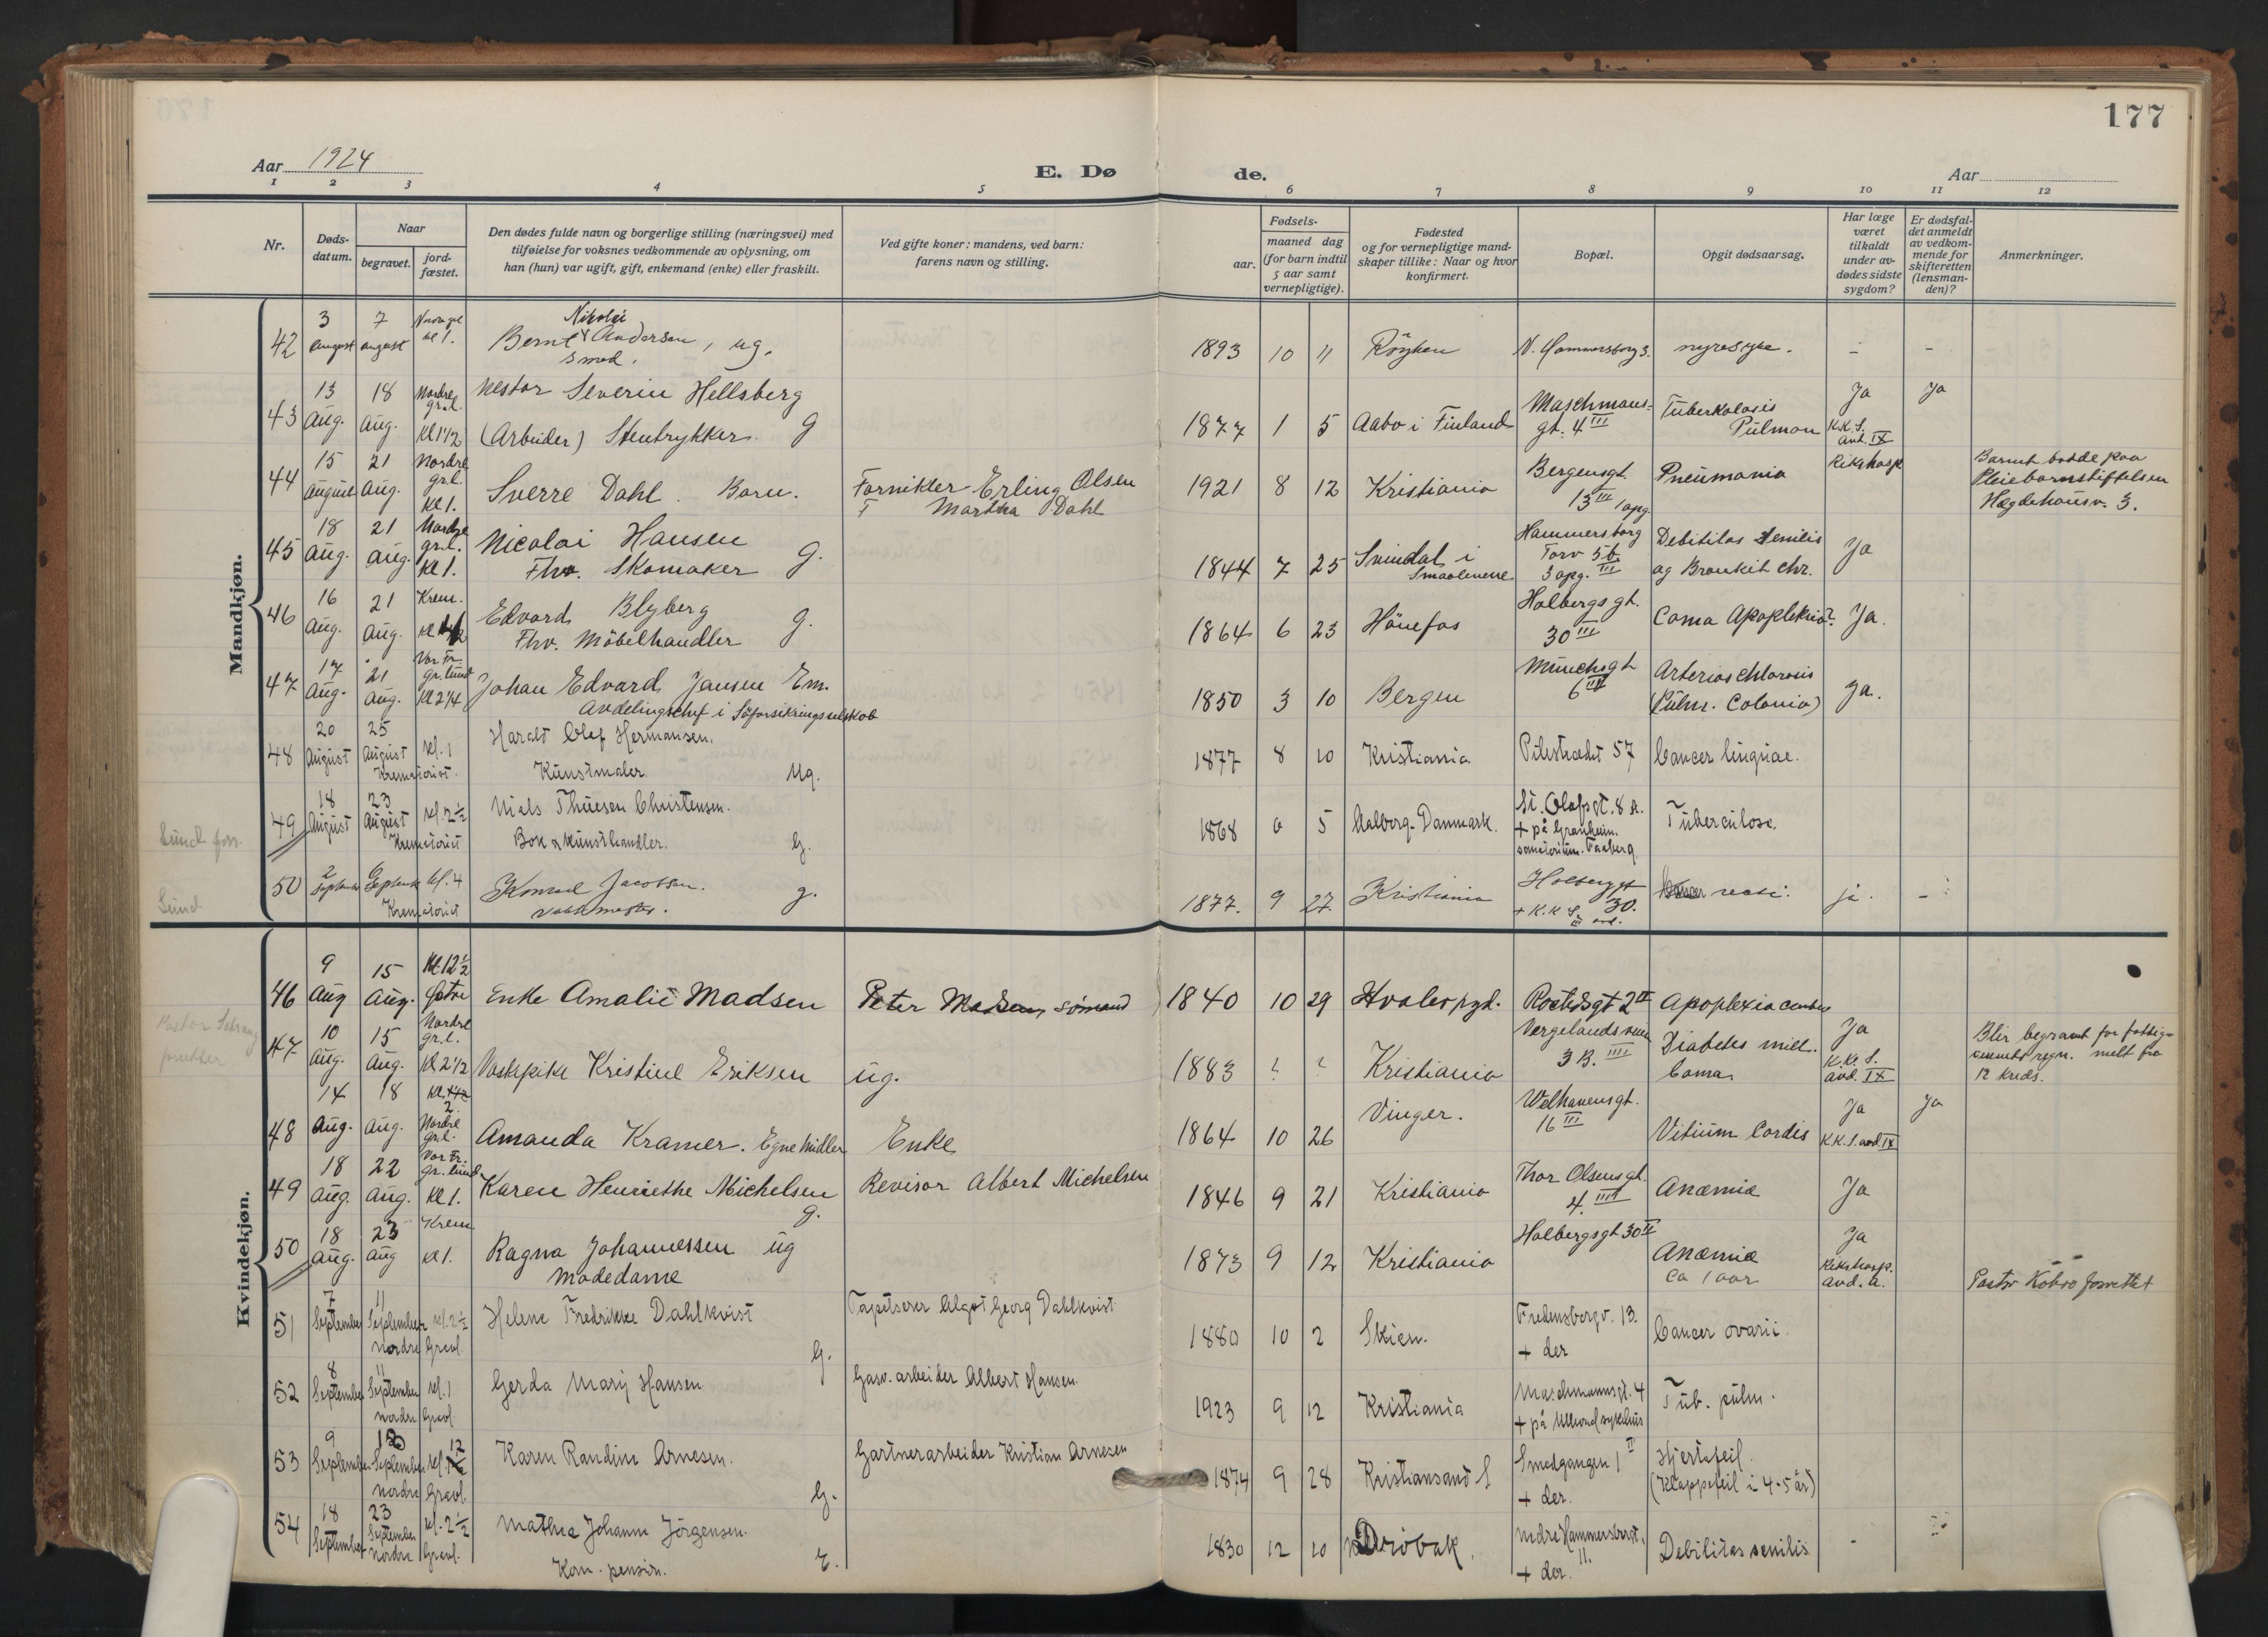 177
Aar 1924
E. Dø
de.
Aar
1 2 3 4 5 6 7 8 9 10 11 12
Nr.
Døds-
datum.
Naar
begravet.
jord-
fæstet.
Den dødes fulde navn og borgerlige stilling (næringsvei) med
tilføielse for voksnes vedkommende av oplysning, om
han (hun) var ugift, gift, enkemand (enke) eller fraskilt.
Ved gifte koner: mandens, ved barn:
farens navn og stilling.
Fødsels-
aar.
maaned dag
(for barn indtil
5 aar samt
vernepligtige).
Fødested
og for vernepligtige mand-
skaper tillike: Naar og hvor
konfirmert.
Bopæl.
Opgit dødsaarsag.
Har læge
været
tilkaldt
under av-
dødes sidste
sygdom?
Er dødsfal-
det anmeldt
av vedkom-
mende for
skifteretten
(lensman-
den)?
Anmerkninger.
Mandkjøn.
42 3 august 7 august kl 1.
Nikolai
Bernt Andersen, ug.
Smed.
1893 10 11 Röyken N. Hammersborg 3. nyresyke. - -
43 13 Aug. 18 Aug. Nordre gr.l. Kl 1 1/2
Nestor Severin Hellsberg
(Arbeider) Stentrykker. G
1877 1 5 Aabo i Finland Maschmans=
gt. 4 III Tuberkolosis
Pulmon Ja
K.K.S.
avd. IX Ja
44 15 August 21 Aug. Nordre gr.l. Kl 1.
Sverre Dahl. Barn.
Fornikler Erling Olsen
Martha Dahl
1921 8 12 Kristiania Bergensgt.
13 III 1 opg. Pneumonia Rikshosp.
Barnet bodde paa
Pleiebarnstiftelsen
Hægdehausv. 3.
45 18 Aug. 21 Aug. Nordre gr.l. Kl 1.
Nicolai Hansen
Fhv. Skomaker G.
1844 7 25 Svindal i
Smaalenene Hammersborg
Torv 5b
3 opg. III Debilitas Senilis
og Bronkit chr. Ja
46 16 Aug. 21 Aug. Krem.
Edvard Blyberg
Fhv. Möbelhandler g.
1864 6 23 Hönefos Holbergs gt.
30 III Coma Apoplekia? Ja.
47 17 Aug. 21 Aug. Vor Fr. gr.lund Kl 2 1/4
Johan Edvard Jansen Em.
Avdelingschef i Söforsikringsselskab
1850 3 10 Bergen Munchsgt
6 Arterioschlorosis
Ja.
48 20 August 25 August kl. 1
Krematoriet.
Harald Olaf Hermansen.
Kunstmaler. Ug.
1877 8 10 Kristiania Pilestrædet 57 Cancer linguae.
49 18 August 23 August kl. 2 1/2
Krematoriet
Niels Thuesen Christensen.
Bok & kunsthandler. G.
1868 6 5 Aalborg-Danmark. St. Olafsgt. 8 A.
+ på Granheim.
sanatorium. Faaberg. Tuberculose.
Lund forr.
50 2 September 6 September kl. 4
Krematoriet
Konrad Jacobsen.
vaktmester. g.
1877. 9 27. Kristiania Holbergsgt
30.
+ K.K.S.
III avd. recti. ja. -
Lund
Kvindekjøn.
46 9 Aug 15 Aug. Kl 12 1/2 Østre
Enke Amalie Madsen Peter Madsen sömand
1840 10 29 Hvalerpgd. Apoplexia
47 10 Aug. 15 Aug. Nordre gr.l. Kl 2 1/2
Vaskepike Kristine Eriksen ug.
1883 ? ? Kristiania Vergelandsveien
3 B. IIII Diabetes mell.
Coma. Ja
K.K.S.
avd. IX
Blir begravet for fattig-
12 kreds.
Pastor
48 14 Aug. 18 Aug. Kl. 2. Nordre gr.l.
Amanda Kramer. Egne Midler Enke
1864 10 26 Vinger. Welhavensgt.
16 III Vitium Cordis Ja
K.K.S. avd. IX Ja
49 18 Aug. 22 Aug. Vor Fr. gr. lund. Kl 1.
Karen Henriethe Michelsen
g.
Revisor Albert Michelsen
1846 9 21 Kristiania Thor Olsens gt.
4. IIII Anæmia Ja
50 18 Aug. 23 Aug Krem Kl 1.
Ragna Johannessen ug
Modedame
1873 9 12 Kristiania Holbergsgt 30 II Anæmia
ca 1 aar Ja
Rikshosp.
avd. A.
Pastor Kobro forrettet
51 7 September 11 September kl. 2 1/2
nordre Gravl.
Helene Fredrikke Dahlkvist
G.
Tapetserer Algot Georg Dahlkvist
1880 10 2 Skien. Fredensborgv. 13.
+ der Cancer ovarii.
52 8 September 11 September kl. 1
nordre Gravl.
Gerda Mary Hansen
Gasv. arbeider Albert Hansen.
1923 9 12 Kristiania Maschmannsgt. 4
+ på Ullevaal sykehus Tub. pulm.
53 9 September September kl. 12
nordre Gravl.
Karen Randine Arnesen.
G.
Gartnerarbeider Kristian Arnesen
1874 9 28 Kristiansand S Smedgangen 1 II
+ der. Hjertefeil.
(Klappefeil i 4-5 år)
54 18 September 23 September kl. 2 1/2
nordre Gravl.
Mathea Johanne Jörgensen.
Kom. pension. E.
1830 12 10 Dröbak. Nedre Hammersborggt.
11.
+ der. Debilitas senilis -